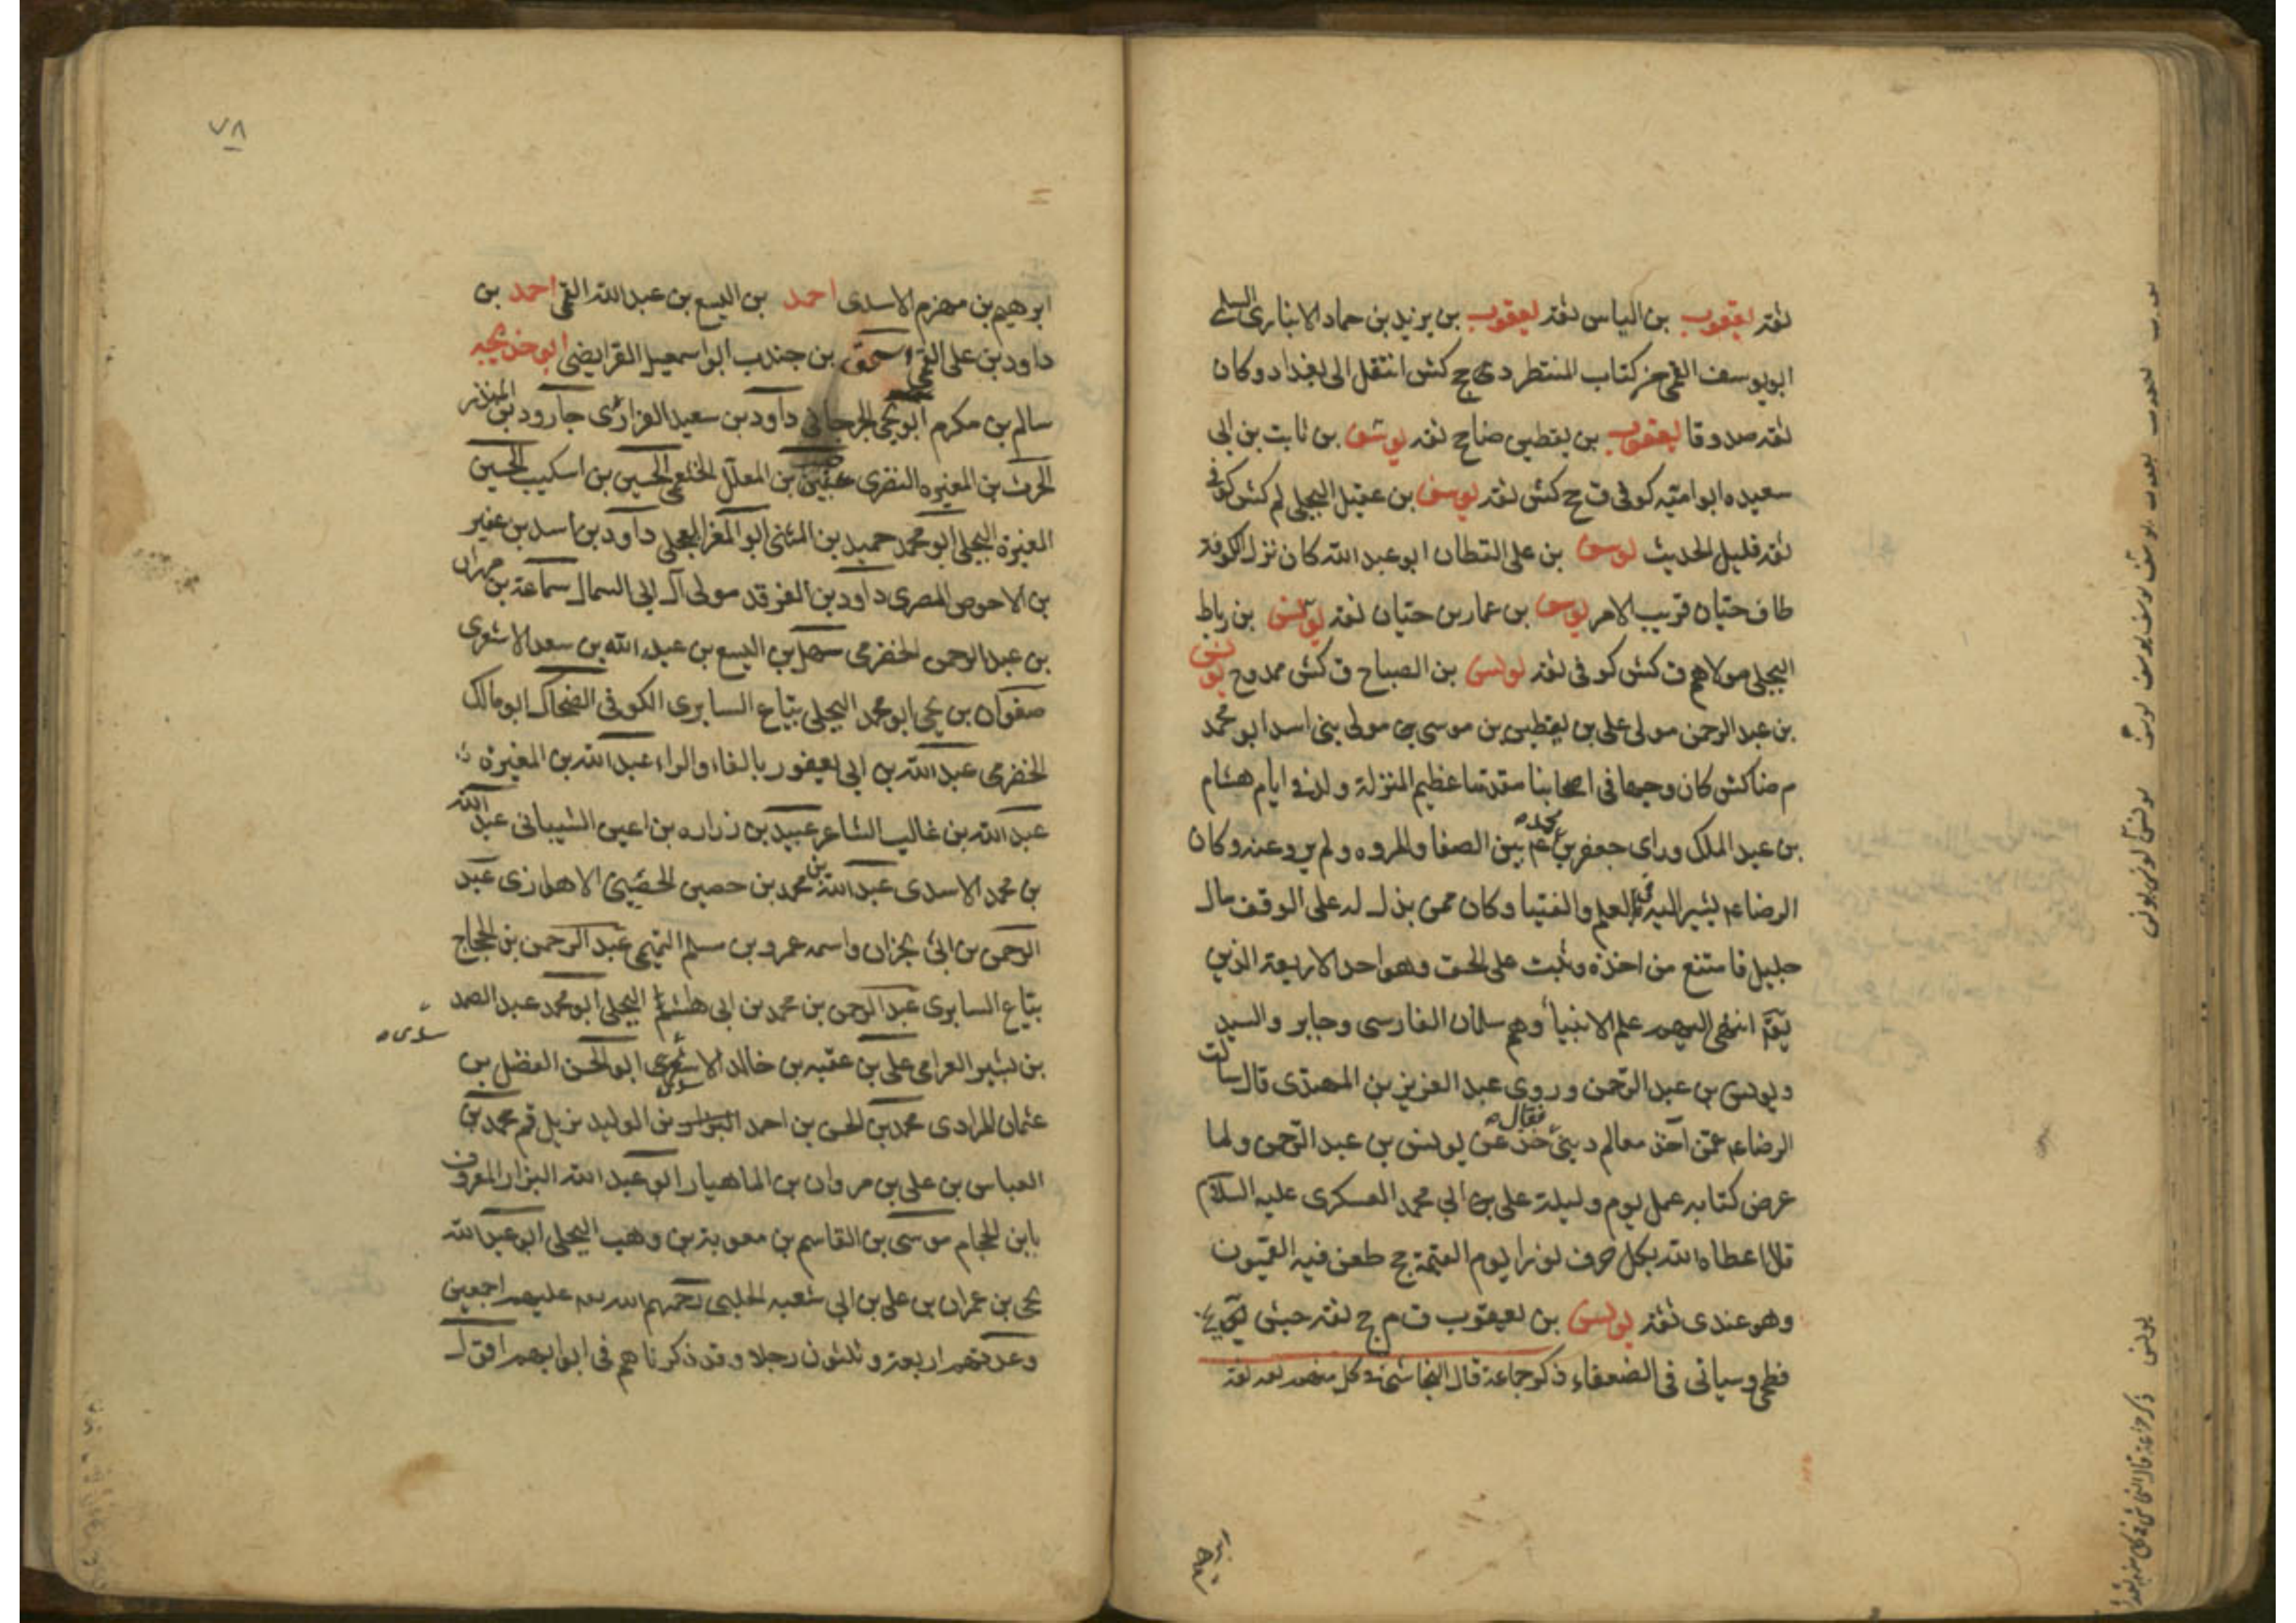 ثقة يعقوب بن الياس ثقة يعقوب بن يزيد بن حماد الانباري السلمي
ابو يوسف القمي من كتاب المنتصر دي ج كش انتقل الى بغداد وكان
ثقة صدوقا يعقوب بن يقطين ضا ج ثقة يوسف بن ثابت بن ابي
سعيده ابو امية كوفي ق ج كش ثقة يوسف بن عقيل البجلي لم كش كوفي
ثقة قليل الحديث يوسف بن علي القطان ابو عبد الله كان نزل الكوفة
طاق حيان قريب الامر يوسف بن عمار بن حيان ثقة يونس بن رباط
البجلي مولاهم ق كش كوفي ثقة يونس بن الصباح ق كش ممدوح يونس
بن عبد الرحمن مولى علي بن يقطين بن موسى مولى بني اسد ابو محمد
م ضا كش كان وجيها في اصحابنا متقدما عظيم المنزلة ولد في ايام هشام
بن عبد الملك وراى جعفر بن محمد ع م بين الصفا والمروه ولم يرو عنه وكان
الرضا عم يشير اليه في العلم والفتيا وكان ممن بذل له على الوقف مال
جليل فامتنع من اخذه وثبت على الحق وهو احد الاربعة الذين
يقم انتهى اليهم علم الانبياء وهم سلمان الفارسي وجابر والسيد
ويونس بن عبد الرحمن وروى عبد العزيز بن المهتدى قال سالت
الرضا عم عمن آخذ معالم ديني فقال خذ عن يونس بن عبد الرحمن ولما
عرض كتابه عمل يوم وليلة علي بن ابي محمد العسكري عليه السلام
قال اعطاه الله بكل حرف نورا يوم القيمة ج طعن فيه القميون
وهو عندي ثقة يونس بن يعقوب ق م ج ثقة
فطحي وسياتي في الضعفاء ذكر جماعة قال النجاشي في كل منهم ثقة ثقة
٧٨
ابرهيم بن مهزم الاسدي احمد بن اليسع بن عبد الله القمي احمد بن
داود بن علي القمي اسحق بن جندب ابو اسمعيل الفرايضي ابو خديجه
سالم بن مكرم ابو يحيى الجرجاني داود بن سعيد الفزاري جارود بن المنذر
الحرث بن المغيره النصري بن المعلل الخثعمي الحسين بن اسكيب الحسين
المغيرة البجلي ابو محمد حميد بن المثنى ابو المغرا العجلي داود بن اسد بن عفير
بن الاحوص المصري داود بن الفرقد مولى آل ابي السمال سماعة بن مهران
بن عبد الرحمن الحضرمي سهل بن اليسع بن عبد الله بن سعد الاشعري
صفوان بن يحيى ابو محمد البجلي بياع السابري الكوفي الضحاك ابو مالك
الحضرمي عبد الله بن ابي يعفور بالفاء والراء عبد الله بن المغيرة
عبد الله بن غالب الشاعر عبيد بن زراره بن اعين الشيباني عبد الله
بن محمد الاسدي عبد الله بن محمد بن حصين الحضيني الاهوازي عبد
الرحمن بن ابي نجران واسمه عمرو بن مسلم التميمي عبد الرحمن بن الحجاج
بياع السابري عبد الرحمن بن محمد بن ابي هاشم البجلي ابو محمد عبد الصمد
بن بشير العرامي علي بن عقبه بن خالد الاسدي ابو الحسن الفضل بن
عثمان المرادي محمد بن الحسن بن احمد بن الوليد نزيل قم محمد بن
العباس بن علي بن مروان بن الماهيار ابو عبد الله البزاز المعروف
بابن الحجام موسى بن القاسم بن معوية بن وهب البجلي ابو عبد الله
يحيى بن عمران بن علي بن ابي شعبه الحلبي رحمهم الله تعه عليهم اجمعين
وعدتهم اربعة وثلثون رجلا وقد ذكرناهم في ابوابهم اقول